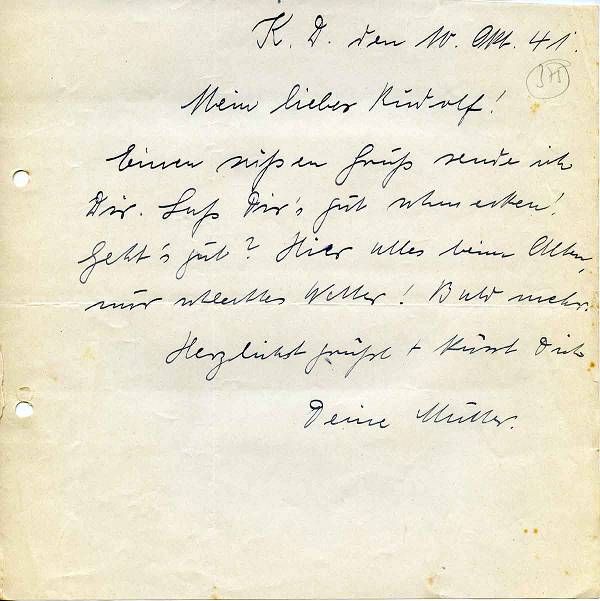 K. D. den 10. Okt. 41.
375
Mein lieber Rudolf!
Einen süßen Gruß sende ich
Dir. Laß Dir's gut schmecken!
Geht's gut? Hier alles beim Alten,
nur schlechtes Wetter! Bald mehr.
Herzlichst grüßt + küsst Dich
Deine Mutter.